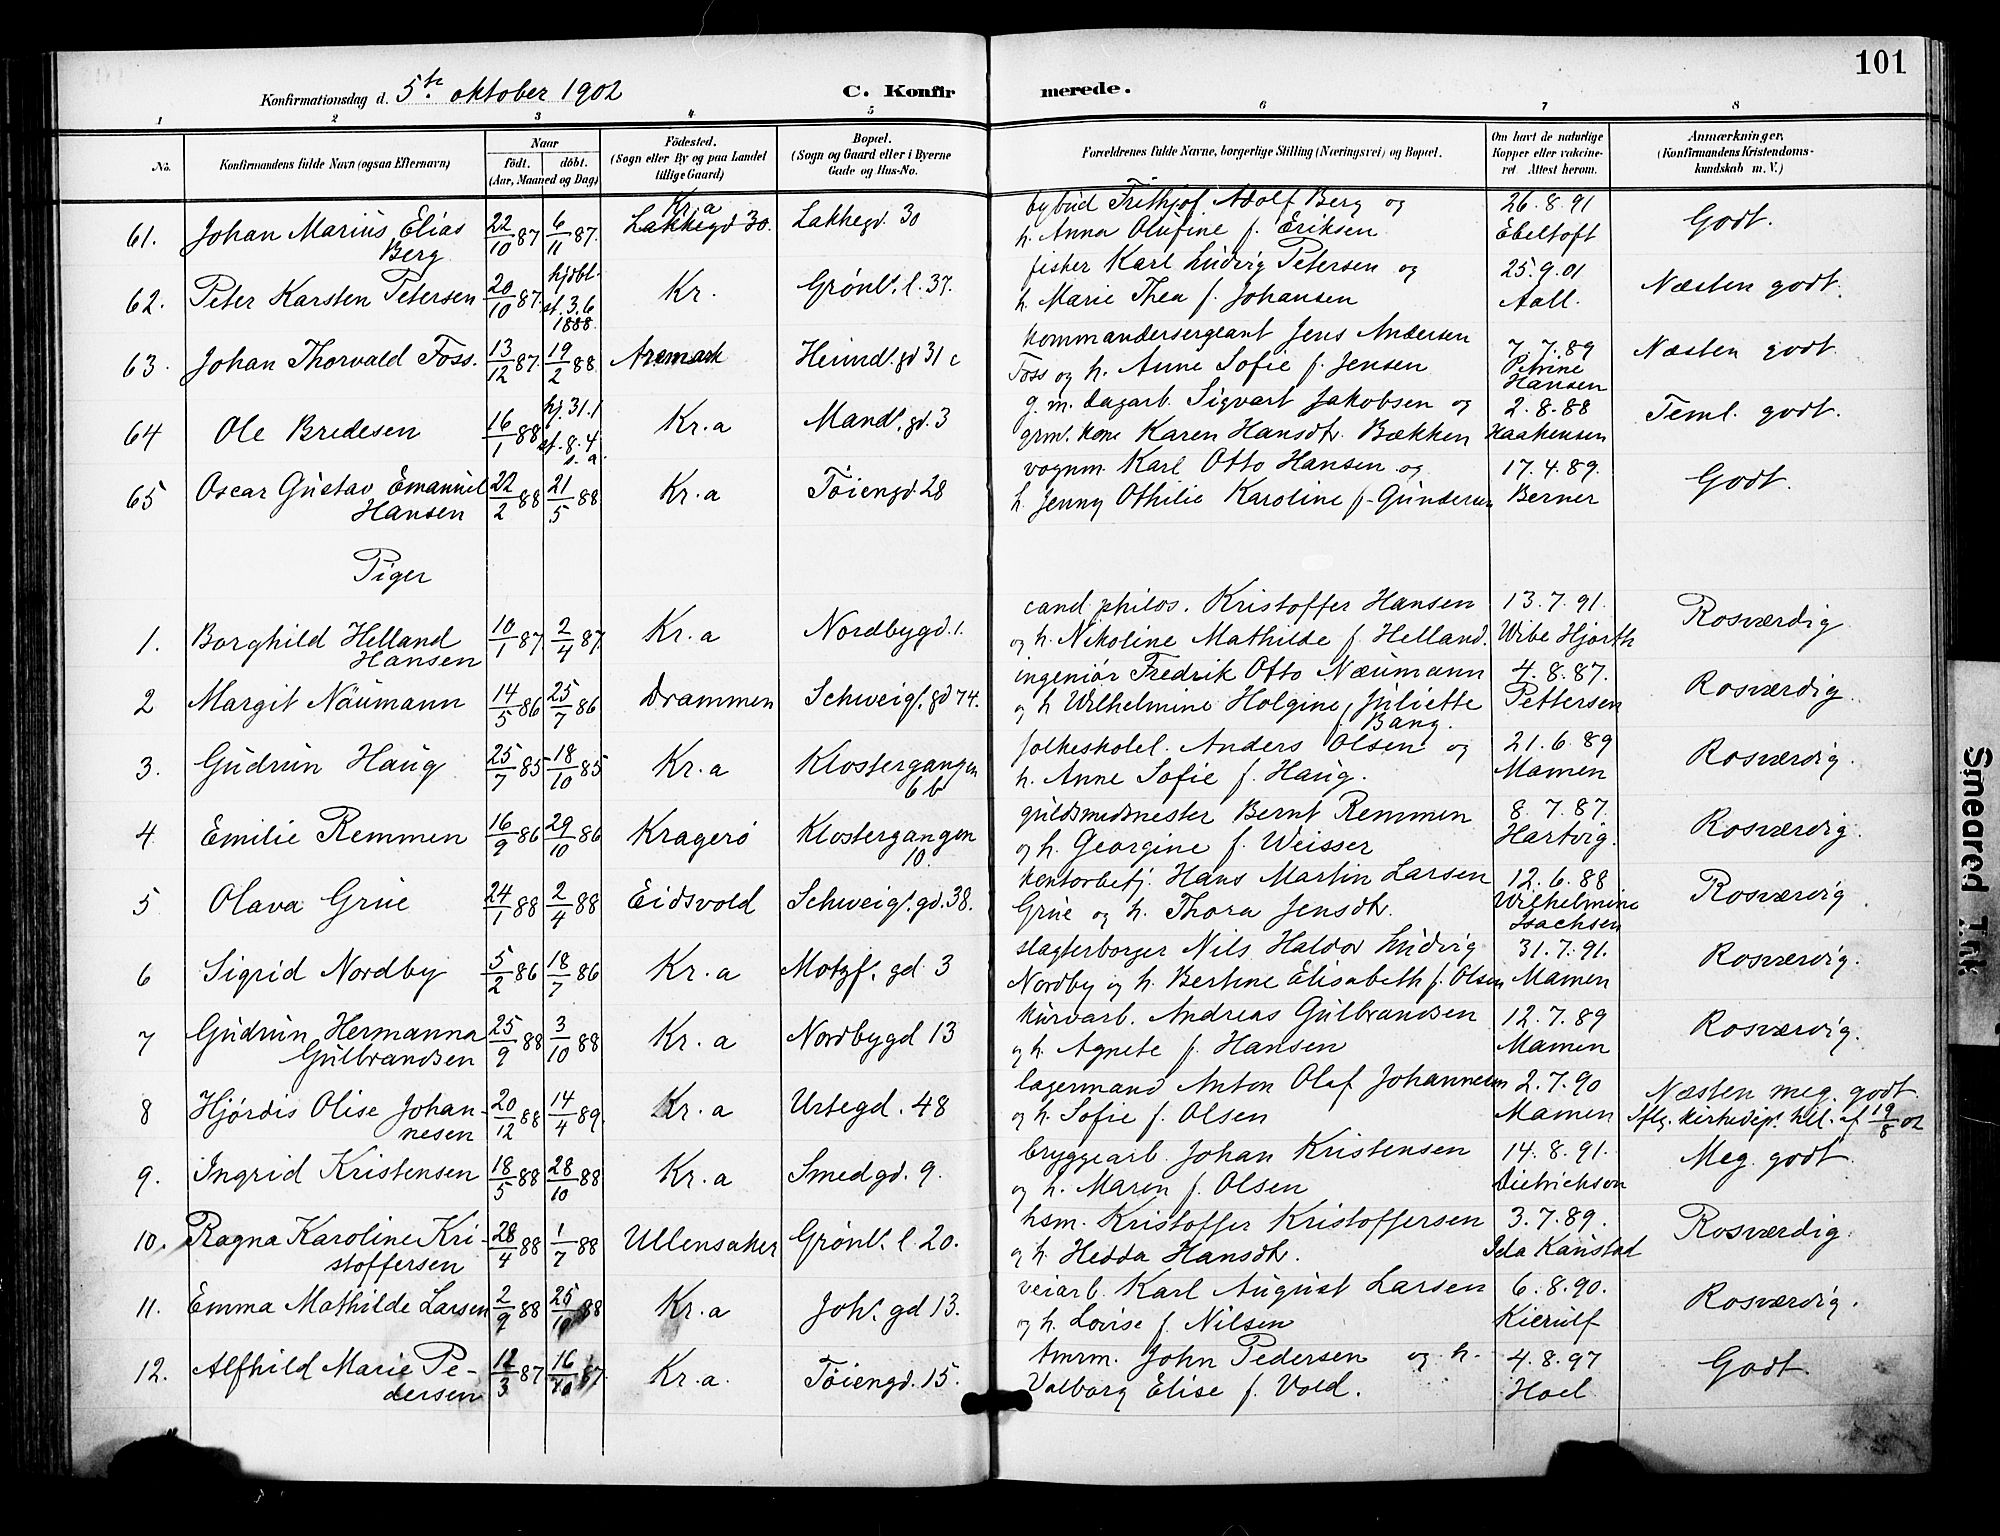 101
Konfirmationsdag d. 5te oktober 1902 C. Konfirmerede.
1 2 3 4 5 6 7 8
No. Konfirmandens fulde Navn (ogsaa Efternavn) Naar födt. döbt. (Aar, Maaned og Dag) Födested. (Sogn eller By og paa Landet tillige Gaard) Bopæl. (Sogn og Gaard eller i Byerne Gade og Hus-No. Forældrenes fulde Navne, borgerlige Stilling (Næringsvei) og Bopæl. Om havt de naturlige Kopper eller vakcineret. Attest herom. Anmærkninger, (Konfirmandens Kristendomskundskab m. V.)
61. Johan Marius Elias Berg 22/10 87 6/11 87. Kr.a Lakkegd 30. Lakkegd. 30 bybud Frithjof Adolf Berg og h. Anna Olufine f. Eriksen 26.8.91 Ebeltoft Godt.
62. Peter Karsten Petersen 20/10 87. hjdbt. st. 3.6 1888. Kr. Grönl. l. 37. fisker Karl Ludvig Petersen og h. Marie Thea f. Johansen 25.9.01 Aall. Næsten godt.
63. Johan Thorvald Foss. 13/12 87. 19/2 88 Aremark Heimd. gd 31 c kommandersergeant Jens Andersen Foss og h. Anne Sofie f. Jensen 7.7.89 Petrine Hansen Næsten godt.
64 Ole Bredesen 16/1 88 hj. 31.1 st. 8.4 s.a. Kr.a Mand. gd. 3 g.m. dagarb. Sigvart Jakobsen og grm. kone Karen Hansdtr. Bækken 2.8.88 Haakensen Teml. godt.
65 Oscar Gustav Emanuel Hansen 22/2 88 21/5 88 Kr.a Töiengd. 28 vognm. Karl Otto Hansen og h. Jenny Othilie Karoline f. Gundersen 17.4.89. Berner Godt.
Piger
1. Borghild Helland Hansen 10/1 87. 2/4 87. Kr.a Nordbygd. 1. cand. philos. Kristoffer Hansen og h. Nikoline Mathilde f. Helland. 13.7.91. Wibe Hjorth Rosværdig
2 Margit Näumann 14/5 86 25/7 86 Drammen Schweig. gd 74. ingeniör Fredrik Otto Næumann og h Wilhelmine Holgine Juliette f. Bang. 4.8.87. Pettersen Rosværdig.
3. Gudrun Haug 25/7 85 18/10 85 Kr.a Klostergangen 6 b folkeskolel. Anders Olsen og h. Anne Sofie f. Haug. 21.6.89 Mamen Rosværdig.
4 Emilie Remmen 16/9 86 29/10 86 Kragerö Klostergangen 10. guldsmedmester Bernt Remmen og h. Georgine f. Weisser 8.7.87. Hartvig. Rosværdig.
5 Olava Grue 24/1 88 2/4 88 Eidsvold Schweig. gd. 38. kontorbetj. Hans Martin Larsen Grue og h. Thora Jensdtr. 12.6.88 Wilhelmine Isachsen Rosværdig.
6 Sigrid Nordby 5/2 86 18/7 86 Kr.a Motzf. gd 3 slagterborger Nils Haldor Ludvig Nordby og h. Bertine Elisabeth f. Olsen 31.7.91. Mamen Rosværdig.
7 Gudrun Hermanna Gulbrandsen 25/9 88 3/10 88 Kr.a Nordbygd 13 kurvarb. Andreas Gulbrandsen og h. Agnete f. Hansen 12.7.89 Mamen Rosværdig.
8 Hjördis Olise Johannesen 20/12 88 14/4 89. Kr.a Urtegd. 48 lagermand Anton Olaf Johannesen og h. Sofie f. Olsen 2.7.90 Mamen Næsten meg. godt. iflg. kirkedep. till. af 19/8 02
9. Ingrid Kristensen 18/5 88 28/10 88 Kr.a Smedgd. 9. bryggearb. Johan Kristensen og h. Maren f. Olsen 14.8.91. Dietrichson Meg. godt.
10. Ragna Karoline Kristoffersen 28/4 88 1/7 88 Ullensaker Grönl. l 20. hsm. Kristoffer Kristoffersen og h. Hedda Hansdtr. 3.7.89. Ida Kanstad Rosværdig.
11. Emma Mathilde Larsen 2/9 88 25/10 88 Kr.a Joh. gd 13. veiarb. Karl August Larsen og h. Lovise f. Nilsen 6.8.90. Kierulf Rosværdig.
12. Alfhild Marie Pedersen 12/3 87 16/10 87. Kr.a. Töiengd. 15. tmrm. John Pedersen og h. Valborg Elise f. Vold. 4.8.97 Hoel Godt.
Smeared Ink